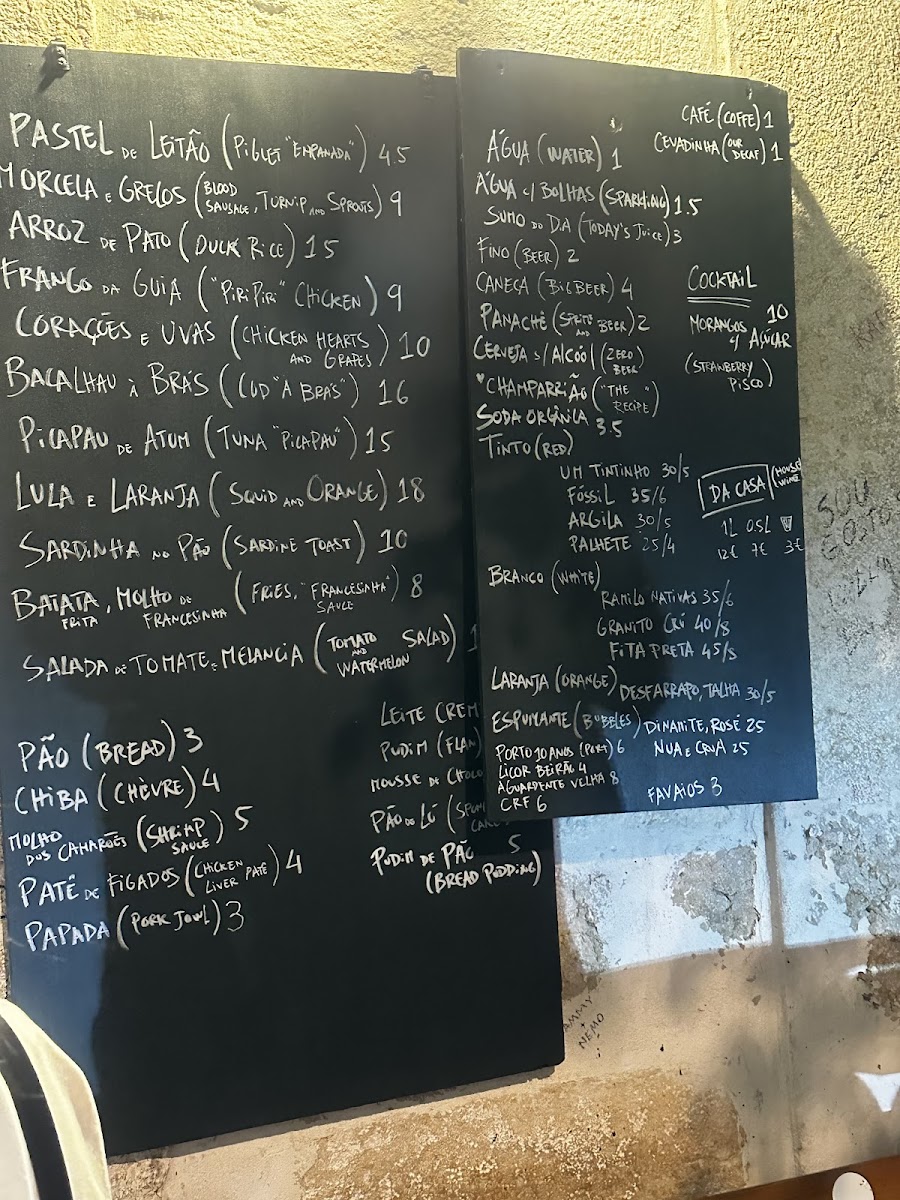 PASTEL DE LEITÃO (PIGLET "EMPANADA") 4.5
MORCELA E GRELOS (BLOOD SAUSAGE, TURNIP AND SPROUTS) 9
ARROZ DE PATO (DUCK RICE) 15
FRANGO DA GUIA ("PIRI PIRI" CHICKEN) 9
CORAÇÕES E UVAS (CHICKEN HEARTS AND GRAPES) 10
BACALHAU À BRÁS (COD "À BRÁS") 16
PICAPAU DE ATUM (TUNA "PICAPAU") 15
LULA E LARANJA (SQUID AND ORANGE) 18
SARDINHA NO PÃO (SARDINE TOAST) 10
BATATA FRITA, MOLHO DE FRANCESINHA (FRIES, "FRANCESINHA" SAUCE) 8
SALADA DE TOMATE E MELANCIA (TOMATO AND WATERMELON SALAD)
PÃO (BREAD) 3
CHIBA (CHÈVRE) 4
MOLHO DOS CAMARÕES (SHRIMP SAUCE) 5
PATÊ DE FIGADOS (CHICKEN LIVER PATÊ) 4
PAPADA (PORK JOWL) 3
LEITE CREM
PUDIM (FLAN)
MOUSSE DE CHOCO
PÃO DE LÓ
PUDIM DE PÃO 5
(BREAD PUDDING)
CAFÉ (COFFE) 1
CEVADINHA (OUR DECAF) 1
ÁGUA (WATER) 1
ÁGUA C/ BOLHAS (SPARKLING) 1.5
SUMO DO DIA (TODAY'S JUICE) 3
FINO (BEER) 2
CANECA (BIG BEER) 4
PANACHÊ (SPRITE AND BEER) 2
CERVEJA S/ ALCÓOL (ZERO BEER)
CHAMPARRIÃO ("THE RECIPE")
SODA ORGÂNICA 3.5
COCKTAIL
MORANGOS C/ AÇÚCAR 10
(STRAWBERRY PISCO)
TINTO (RED)
UM TINTINHO 30/5
FÓSSIL 35/6
ARGILA 30/5
PALHETE 25/4
DA CASA (HOUSE WINE)
1L 0.5L
12€ 7€ 3€
BRANCO (WHITE)
RAMILO NATIVAS 35/6
GRANITO CRÚ 40/8
FITA PRETA 45/
LARANJA (ORANGE) DESFARRAPO, TALHA 30/5
ESPUMANTE (BUBBLES) DINAMITE, ROSÉ 25
NUA E CRUA 25
PORTO 10 ANOS (PORT) 6
LICOR BEIRÃO 4
AGUARDENTE VELHA 8
CRF 6
FAVAIOS 3
AMMY
NEMO